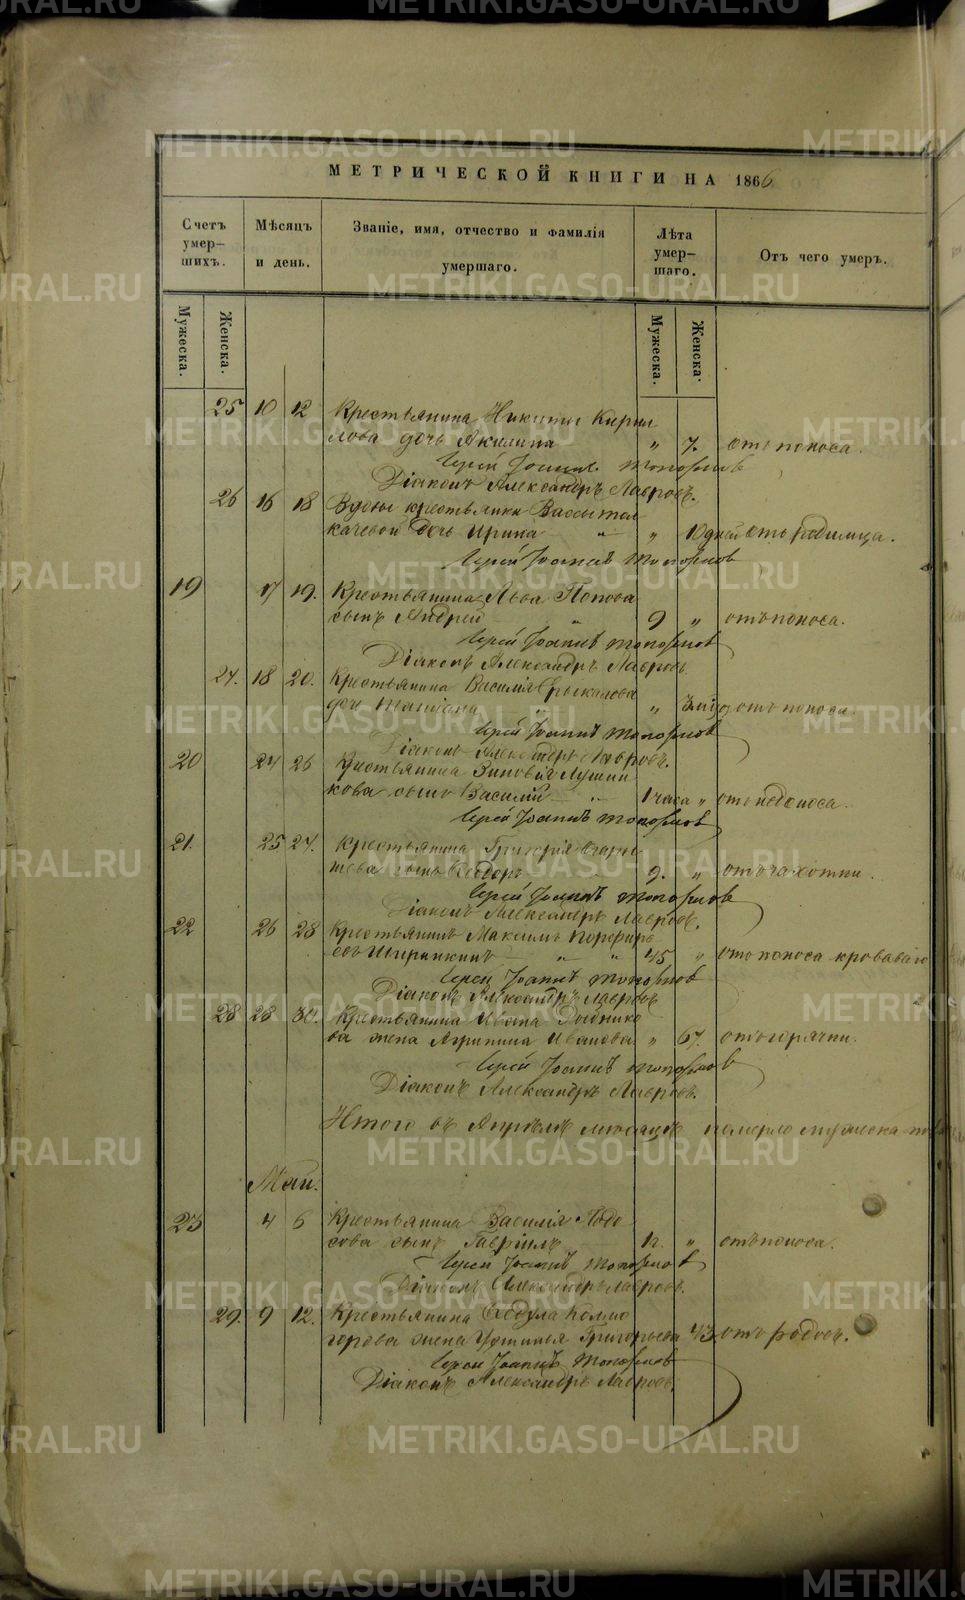 МЕТРИЧЕСКОЙ КНИГИ НА 1866
Счетъ умер-
шихъ.
Мѣсяцъ
и день.
Званіе, имя, отчество и фамилія
умершаго.
Лѣта
умер-
шаго.
Отъ чего умеръ.
Мужеска.
Женска.
Мужеска.
Женска.
25 10 12 Крестьянина Никиты Кирил
лова дочь Акилина „ 7. отъ поноса.
Іерей Іоаннъ Топорковъ
Діаконъ Александръ Лавровъ.
26 16 18 Вдовы крестьянки Вассы Тол
качевой дочь Ирина „ „ 10 дней отъ родимца.
Іерей Іоаннъ Топорковъ
19 17 19. Крестьянина Льва Попова
сынъ Андрей „ 9 „ отъ поноса.
Іерей Іоаннъ Топорковъ
Діаконъ Александръ Лавровъ
27. 18 20. Крестьянина Василія
дочь „ „ отъ поноса.
Іерей Іоаннъ Топорковъ
Діаконъ Александръ Лавровъ.
20 24 26 Крестьянина Зиновія Лушни
кова сынъ Василій „ 1 часа „ отъ недоноса.
Іерей Іоаннъ Топорковъ
21. 25 27. Крестьянина Григорія
сынъ Ѳеодоръ „ 9. „ отъ чахотки.
Іерей Іоаннъ Топорковъ
Діаконъ Александръ Лавровъ.
22 26 28 Крестьянинъ Максимъ Порфирь
евъ Ширинкинъ „ „ 45 „ отъ поноса кроваваго
Іерей Іоаннъ Топорковъ
Діаконъ Александръ Лавровъ
28 28 30. Крестьянина Ивана
жена Агрипина Иванова „ 67. отъ горячки.
Іерей Іоаннъ Топорковъ
Діаконъ Александръ Лавровъ.
Итого въ Апрѣлѣ мѣсяцѣ померло мужеска
Май.
23 4 6 Крестьянина Василія
сынъ Гавріилъ „ отъ поноса.
Іерей Іоаннъ Топорковъ
Діаконъ Александръ Лавровъ.
29. 9 12. Крестьянина Колмо
горова жена Устинья Григорьева 43 отъ родовъ.
Іерей Іоаннъ Топорковъ
Діаконъ Александръ Лавровъ.
METRIKI.GASO-URAL.RU